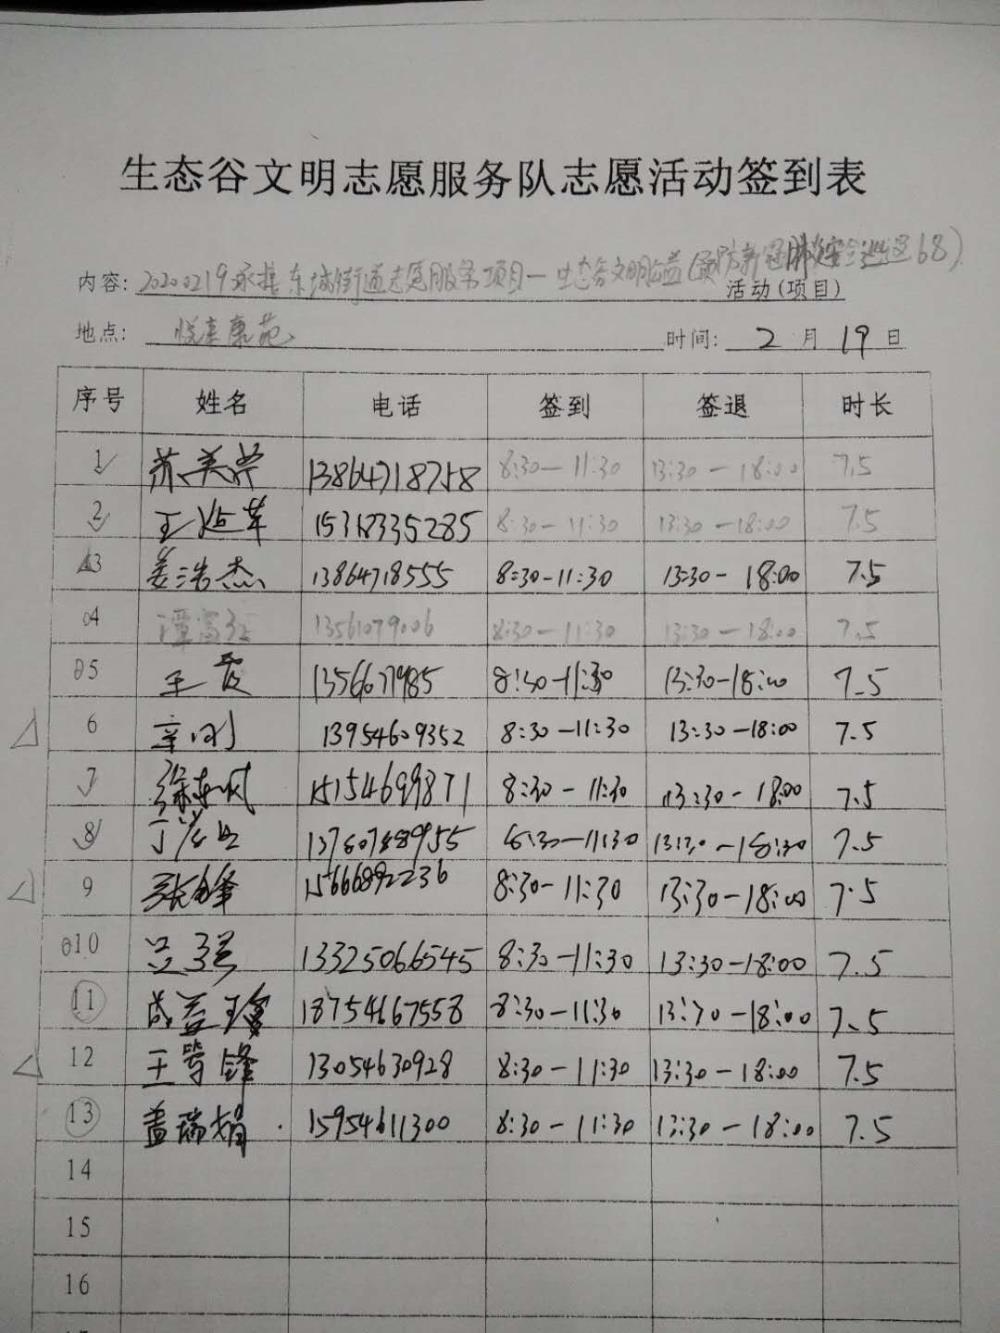 生态谷文明志愿服务队志愿活动签到表
内容: 20200219承接东城街道志愿服务项目—生态谷文明公益(预防新冠肺炎 巡逻68)
活动(项目)
地点: 悦来康苑 时间: 2 月 19 日
序号 姓名 电话 签到 签退 时长
1 苏美荣 13864718758 8:30—11:30 13:30—18:00 7.5
2 王 15318335285 8:30—11:30 13:30—18:00 7.5
3 姜浩杰 13864718555 8:30-11:30 13:30- 18:00 7.5
04 谭富红 13561079006 8:30—11:30 13:30—18:00 7.5
05 王霞 8:30-11:30 13:30-18:00 7.5
6 辛刚 13954609352 8:30-11:30 13:30-18:00 7.5
7 徐东风 15154699871 8:30-11:30 13:30-18:00 7.5
8 8:30-11:30 7.5
9 张锋 15666892236 8:30-11:30 13:30-18:00 7.5
010 吕强 13325066545 8:30-11:30 13:30-18:00 7.5
11 尚益 18754667558 8:30-11:30 13:30-18:00 7.5
12 王 锋 13054630928 8:30-11:30 13:30-18:00 7.5
13 盖瑞娟 15954611300 8:30-11:30 13:30-18:00 7.5
14
15
16